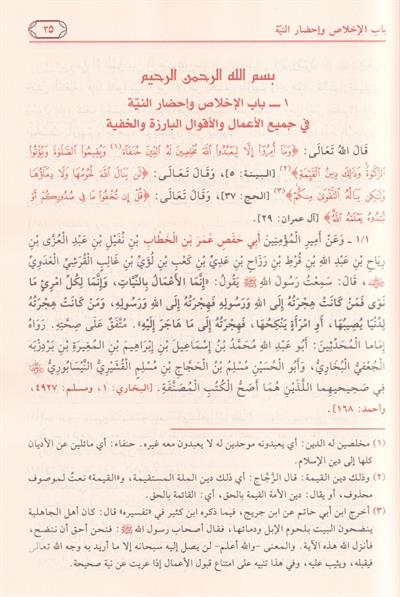 باب الإخلاص وإحضار النيّة
٣٥
بسم الله الرحمن الرحيم
١ ـ باب الإخلاص وإحضار النية
في جميع الأعمال والأقوال البارزة والخفية
قَالَ اللهُ تَعَالَى: ﴿وَمَا أُمِرُوا إِلَّا لِيَعْبُدُوا اللَّهَ مُخْلِصِينَ لَهُ الدِّينَ حُنَفَاءَ(١) وَيُقِيمُوا الصَّلَاةَ وَيُؤْتُوا
الزَّكَاةَ وَذَلِكَ دِينُ الْقَيِّمَةِ﴾(٢) [البينة: ٥]، وَقَالَ تَعَالَى: ﴿لَن يَنَالَ اللَّهَ لُحُومُهَا وَلَا دِمَاؤُهَا
وَلَكِن يَنَالُهُ التَّقْوَى مِنكُمْ﴾(٣) [الحج: ٣٧]، وَقَالَ تَعَالَى: ﴿قُلْ إِن تُخْفُوا مَا فِي صُدُورِكُمْ أَوْ
تُبْدُوهُ يَعْلَمْهُ اللَّهُ﴾ [آل عمران: ٢٩].
١/١ ـ وَعَنْ أَمِيرِ الْمُؤْمِنِينَ أَبِي حَفْصٍ عُمَرَ بْنِ الْخَطَّابِ بْنِ نُفَيْلِ بْنِ عَبْدِ الْعُزَّى بْنِ
رِيَاحِ بْنِ عَبْدِ اللهِ بْنِ قُرْطِ بْنِ رَزَاحِ بْنِ عَدِيِّ بْنِ كَعْبِ بْنِ لُؤَيِّ بْنِ غَالِبٍ الْقُرَشِيِّ الْعَدَوِيِّ
، قَالَ: سَمِعْتُ رَسُولَ اللهِ ﷺ يَقُولُ: «إِنَّمَا الأَعْمَالُ بِالنِّيَّاتِ، وَإِنَّمَا لِكُلِّ امْرِئٍ مَا
نَوَى فَمَنْ كَانَتْ هِجْرَتُهُ إِلَى اللهِ وَرَسُولِهِ فَهِجْرَتُهُ إِلَى اللهِ وَرَسُولِهِ، وَمَنْ كَانَتْ هِجْرَتُهُ
لِدُنْيَا يُصِيبُهَا، أَوِ امْرَأَةٍ يَنْكِحُهَا، فَهِجْرَتُهُ إِلَى مَا هَاجَرَ إِلَيْهِ». مُتَّفَقٌ عَلَى صِحَّتِهِ. رَوَاهُ
إِمَامَا الْمُحَدِّثِينَ: أَبُو عَبْدِ اللهِ مُحَمَّدُ بْنُ إِسْمَاعِيلَ بْنِ إِبْرَاهِيمَ بْنِ الْمُغِيرَةِ بْنِ بَرْدِزْبَه
الْجُعْفِيُّ الْبُخَارِيُّ، وَأَبُو الْحُسَيْنِ مُسْلِمُ بْنُ الْحَجَّاجِ بْنِ مُسْلِمٍ الْقُشَيْرِيُّ النَّيْسَابُورِيُّ
فِي صَحِيحَيْهِمَا اللَّذَيْنِ هُمَا أَصَحُّ الْكُتُبِ الْمُصَنَّفَةِ. [البخاري: ١، ومسلم: ٤٩٢٧،
وأحمد: ١٦٨].
(١) مخلصين له الدين: أي يعبدونه موحدين له لا يعبدون معه غيره. حنفاء: أي مائلين عن الأديان
كلها إلى دين الإسلام.
(٢) وذلك دين القيمة: قال الزَّجَّاج: أي ذلك دين الملة المستقيمة، و«القيمة» نعتٌ لموصوف
محذوف، أو يقال: دين الأمة القيمة بالحق، أي: القائمة بالحق.
(٣) أخرج ابن أبي حاتم عن ابن جريج، فيما ذكره ابن كثير في «تفسيره» قال: كان أهل الجاهلية
ينضحون البيت بلحوم الإبل ودمائها، فقال أصحاب رسول الله ﷺ: فنحن أحق أن ننضح،
فأنزل الله هذه الآية. والمعنى -والله أعلم- لن يصل إليه سبحانه إلا ما أريد به وجه الله تعالى
فيقبله، ويثيب عليه، وفي هذا تنبيه على امتناع قبول الأعمال إذا عريت عن نية صحيحة.